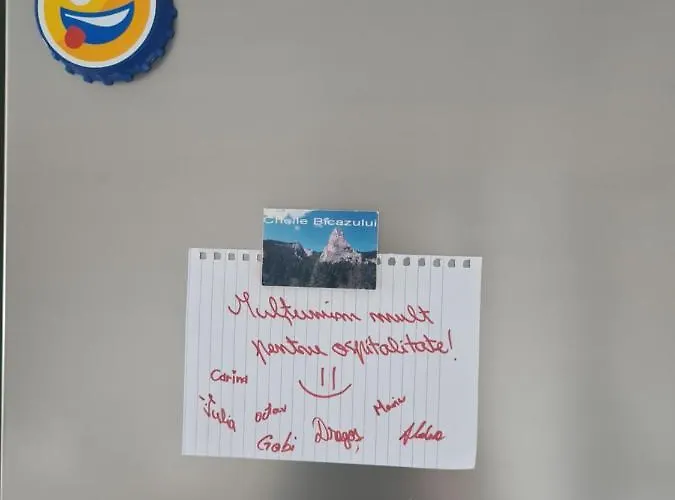 Cheile Bicazului
Mulțumim mult
pentru ospitalitate!
Carina
Iulia Octav Dragoș Maria
Gabi